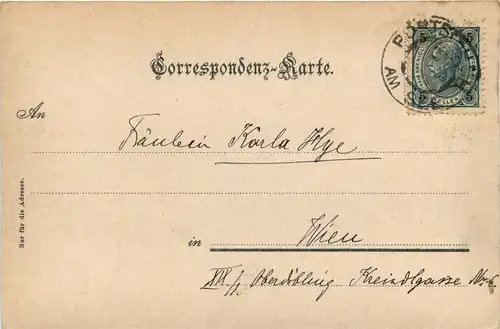 Correspondenz-Karte.
An
Fräulein Karla Hye
in Wien
XIX/1 Oberdöbling Kreindlgasse No 6
Nur für die Adresse.
5 5
PÖRTSCH
AM SEE
5 5